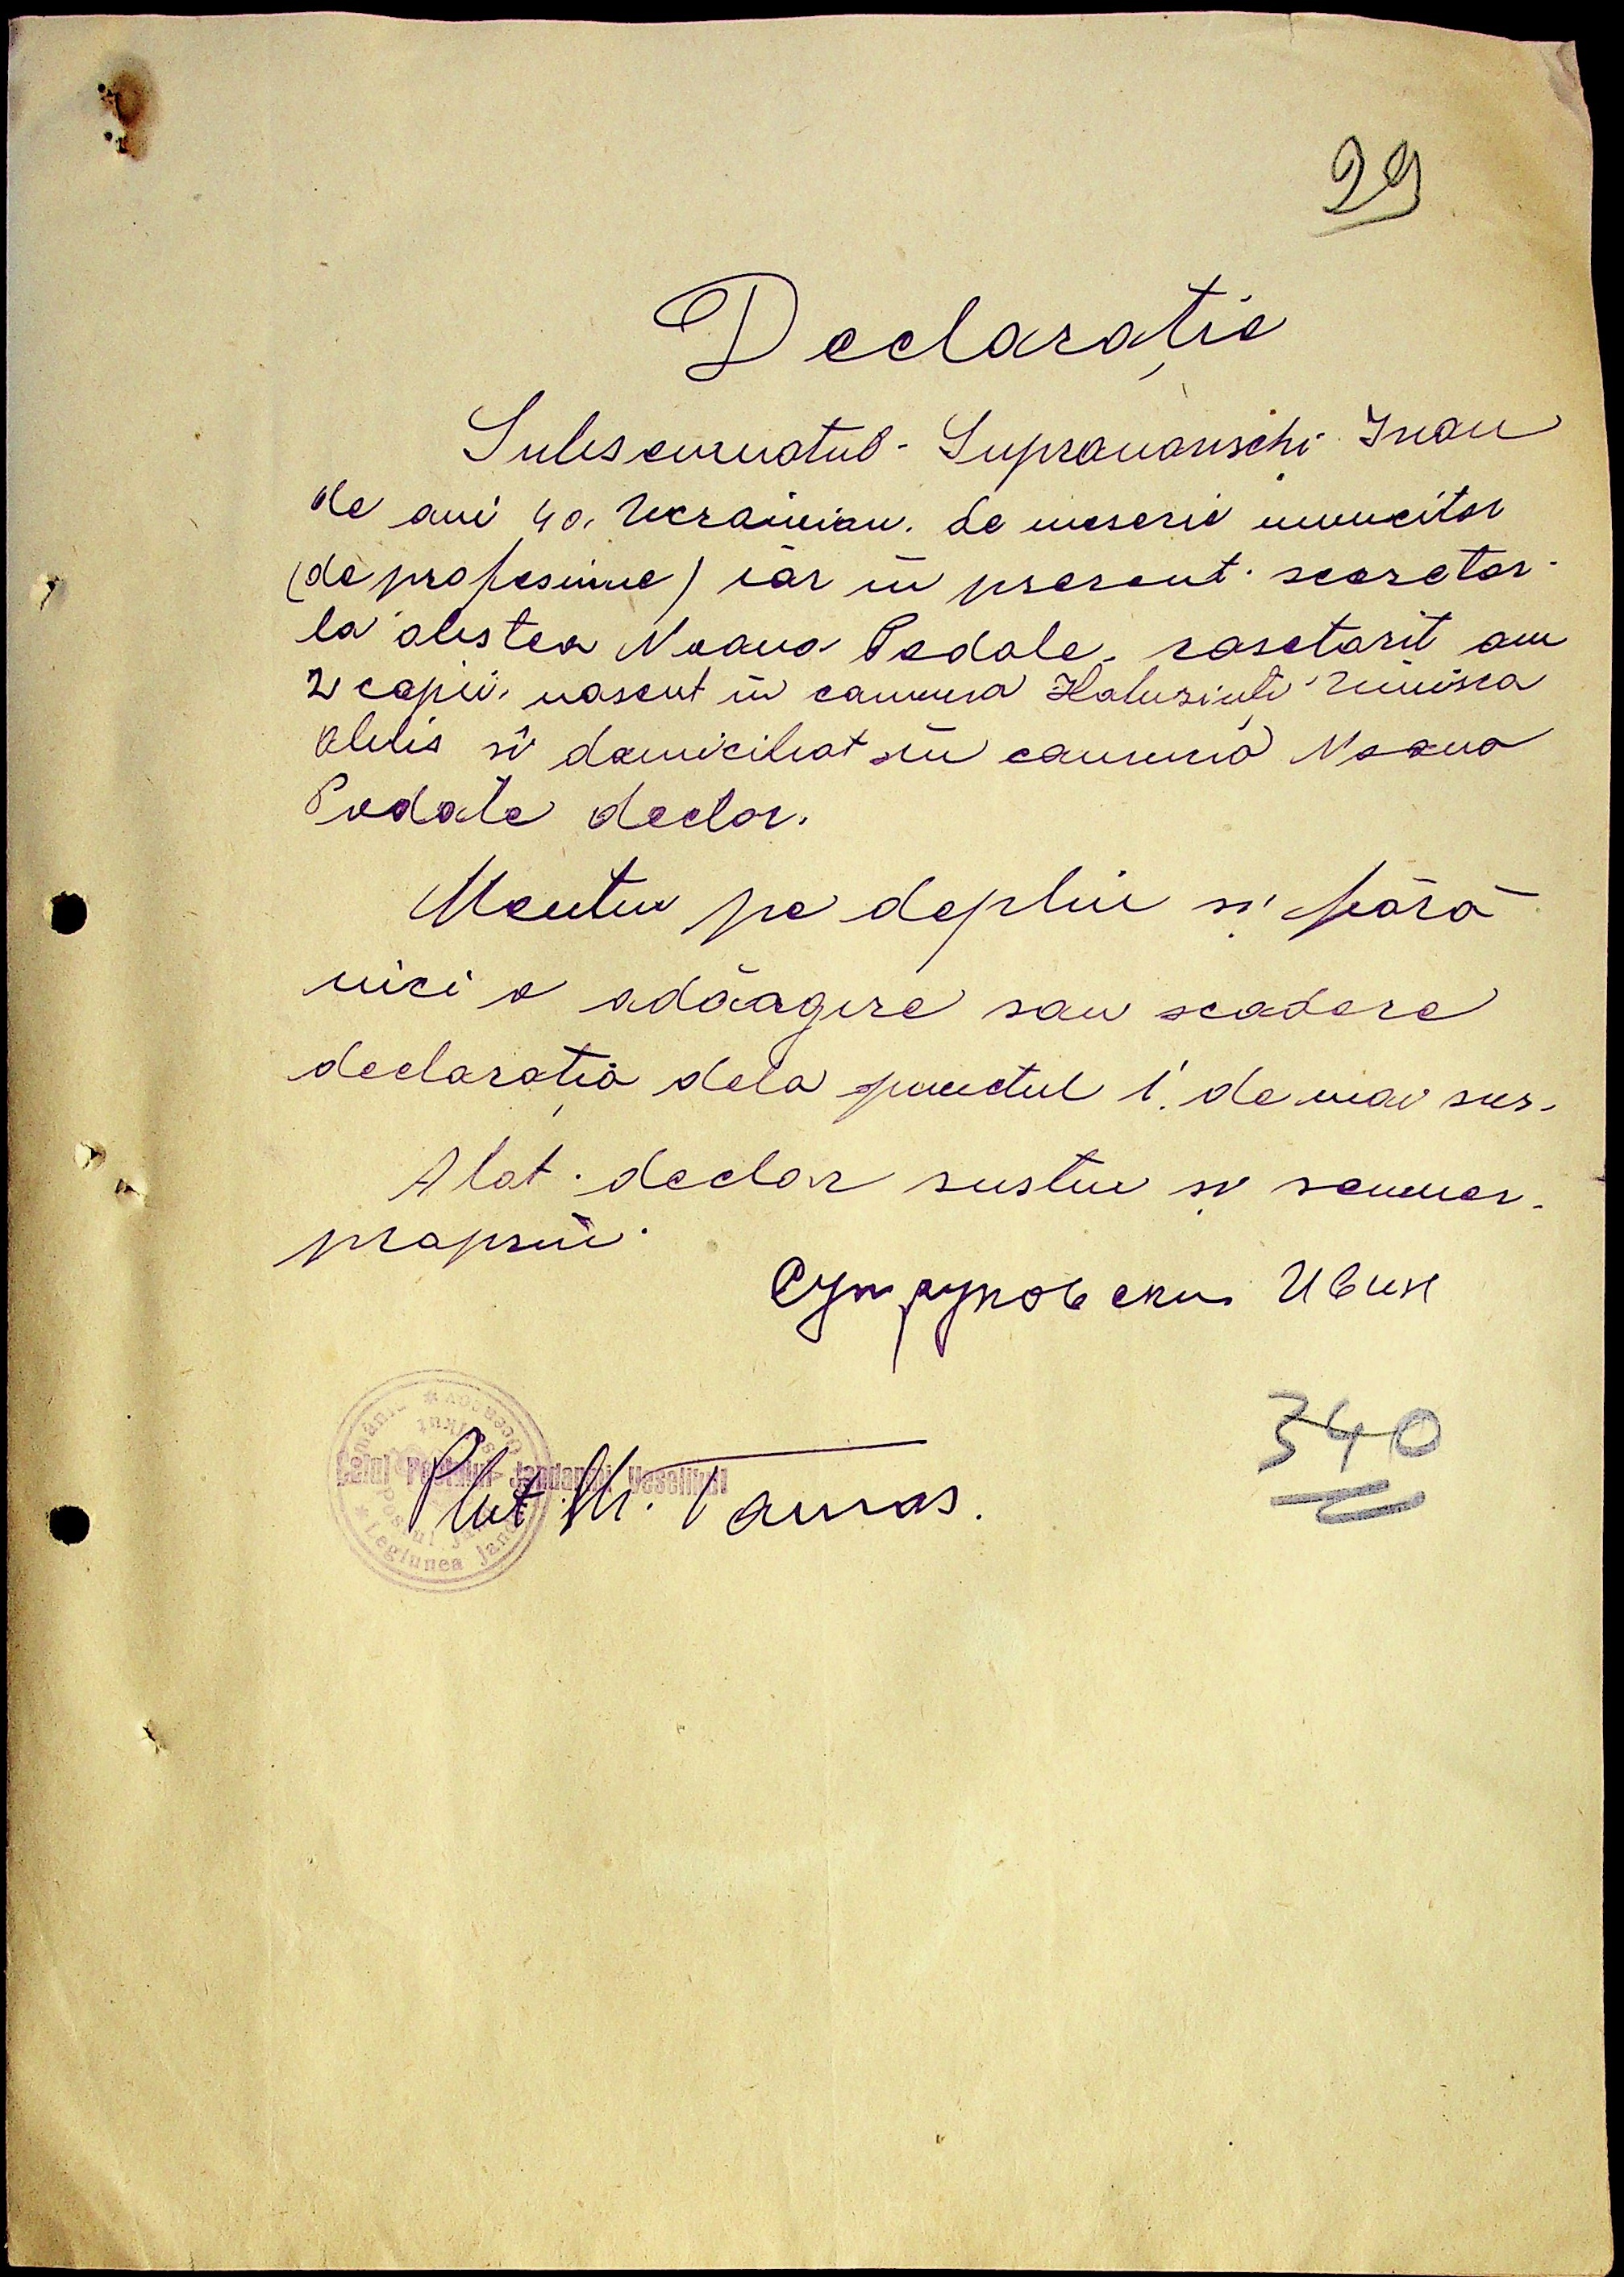 29
Declarație
Subsemnatul - Suprauanschi Iuan
de ani 40. Ucrainian. De meserie muncitor
(de profesiune) iar în present. secretar
la obstea Noaua Podale. casetorit am
2 copii, nascut în comuna Halusinți
si domiciliat în comuna Noaua
Podale declar.
Mentin pe deplin si fără
nici o adăagire sau scadere
declarația dela punctul 1. de mai sus.
Atat declar sustin si semnez
propriu.
Супруновски Иван
Șeful Postului Jandarmi Veselinul
Legiunea Jand
Plut. M. Tamas.
340